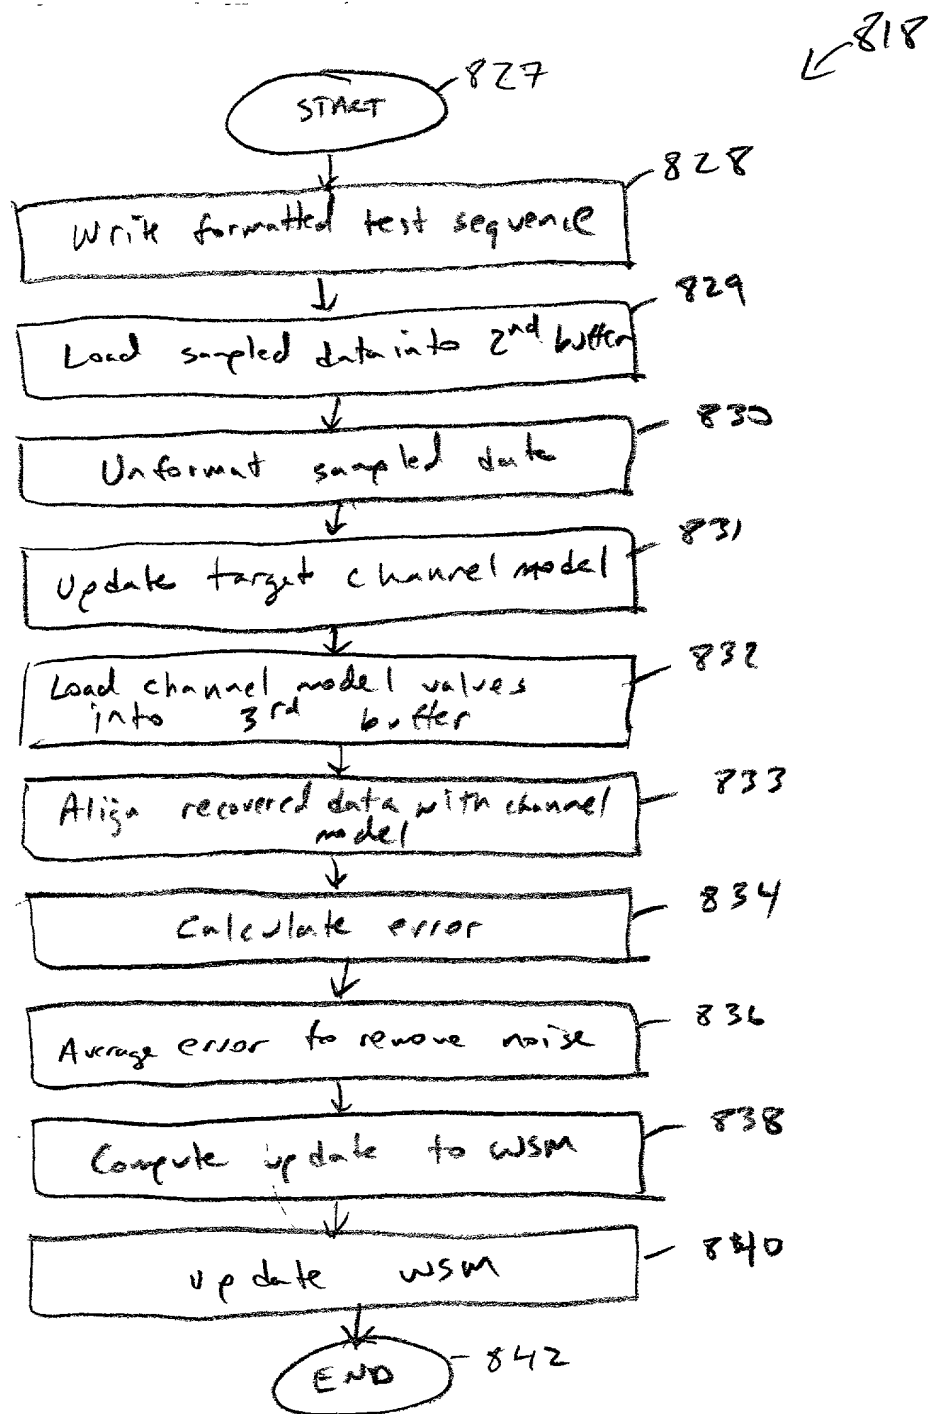 818
START
827
Write formatted test sequence
828
Load sampled data into 2nd buffer
829
Unformat sampled data
830
Update target channel model
831
Load channel model values
into 3rd buffer
832
Align recovered data with channel
model
833
Calculate error
834
Average error to remove noise
836
Compute update to WSM
838
Update WSM
840
END
842